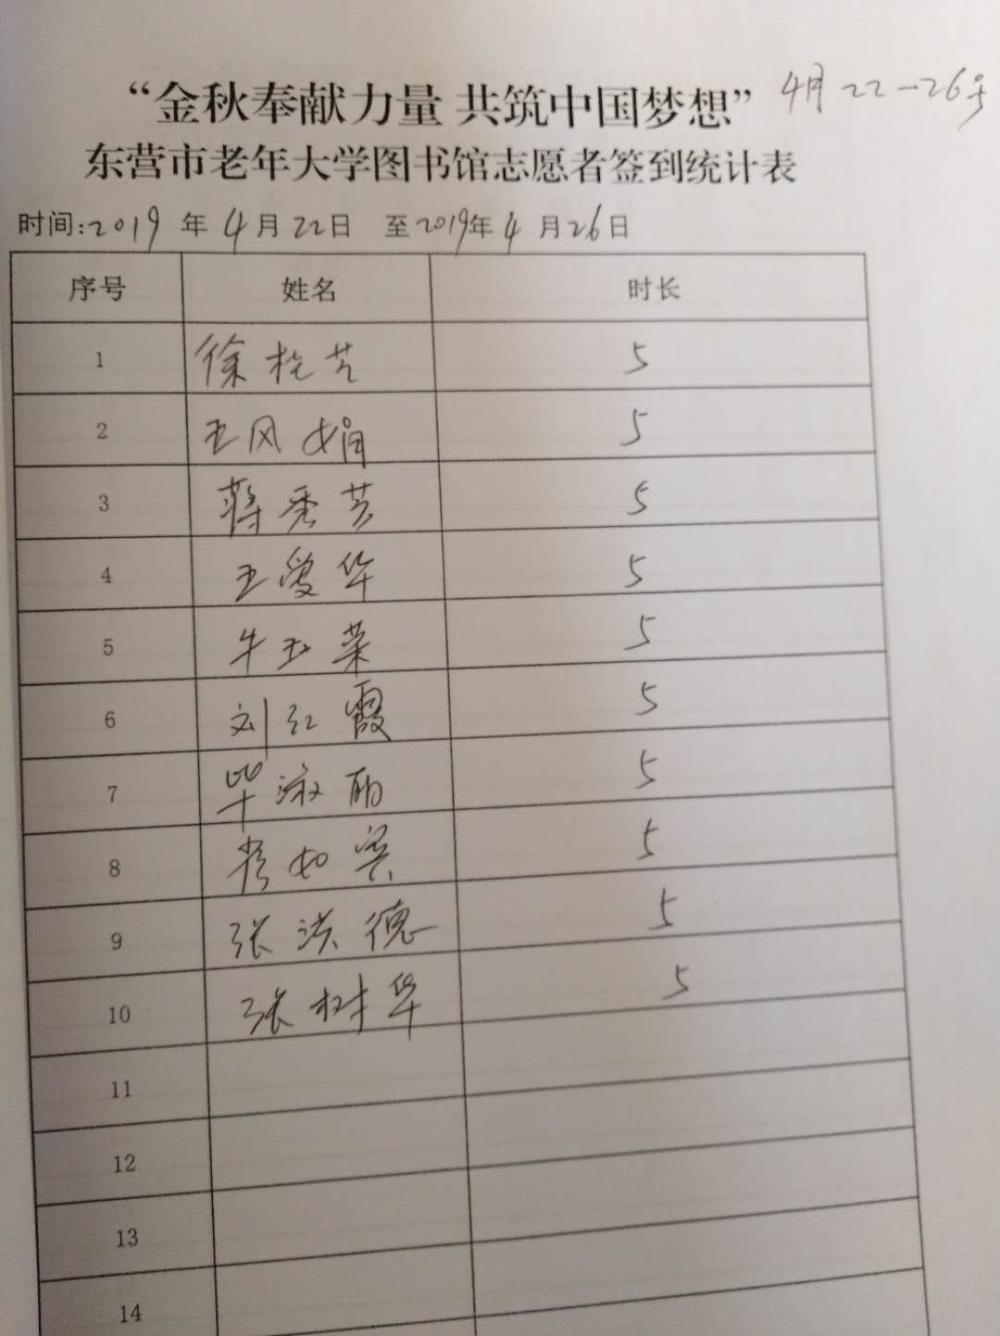 “金秋奉献力量 共筑中国梦想” 4月22-26号
东营市老年大学图书馆志愿者签到统计表
时间:2019年4月22日 至2019年4月26日
序号 姓名 时长
1 徐 5
2 王风娟 5
3 蒋秀芳 5
4 王爱华 5
5 牛玉荣 5
6 刘红霞 5
7 毕淑丽 5
8 如 5
9 张洪德 5
10 张树华 5
11
12
13
14